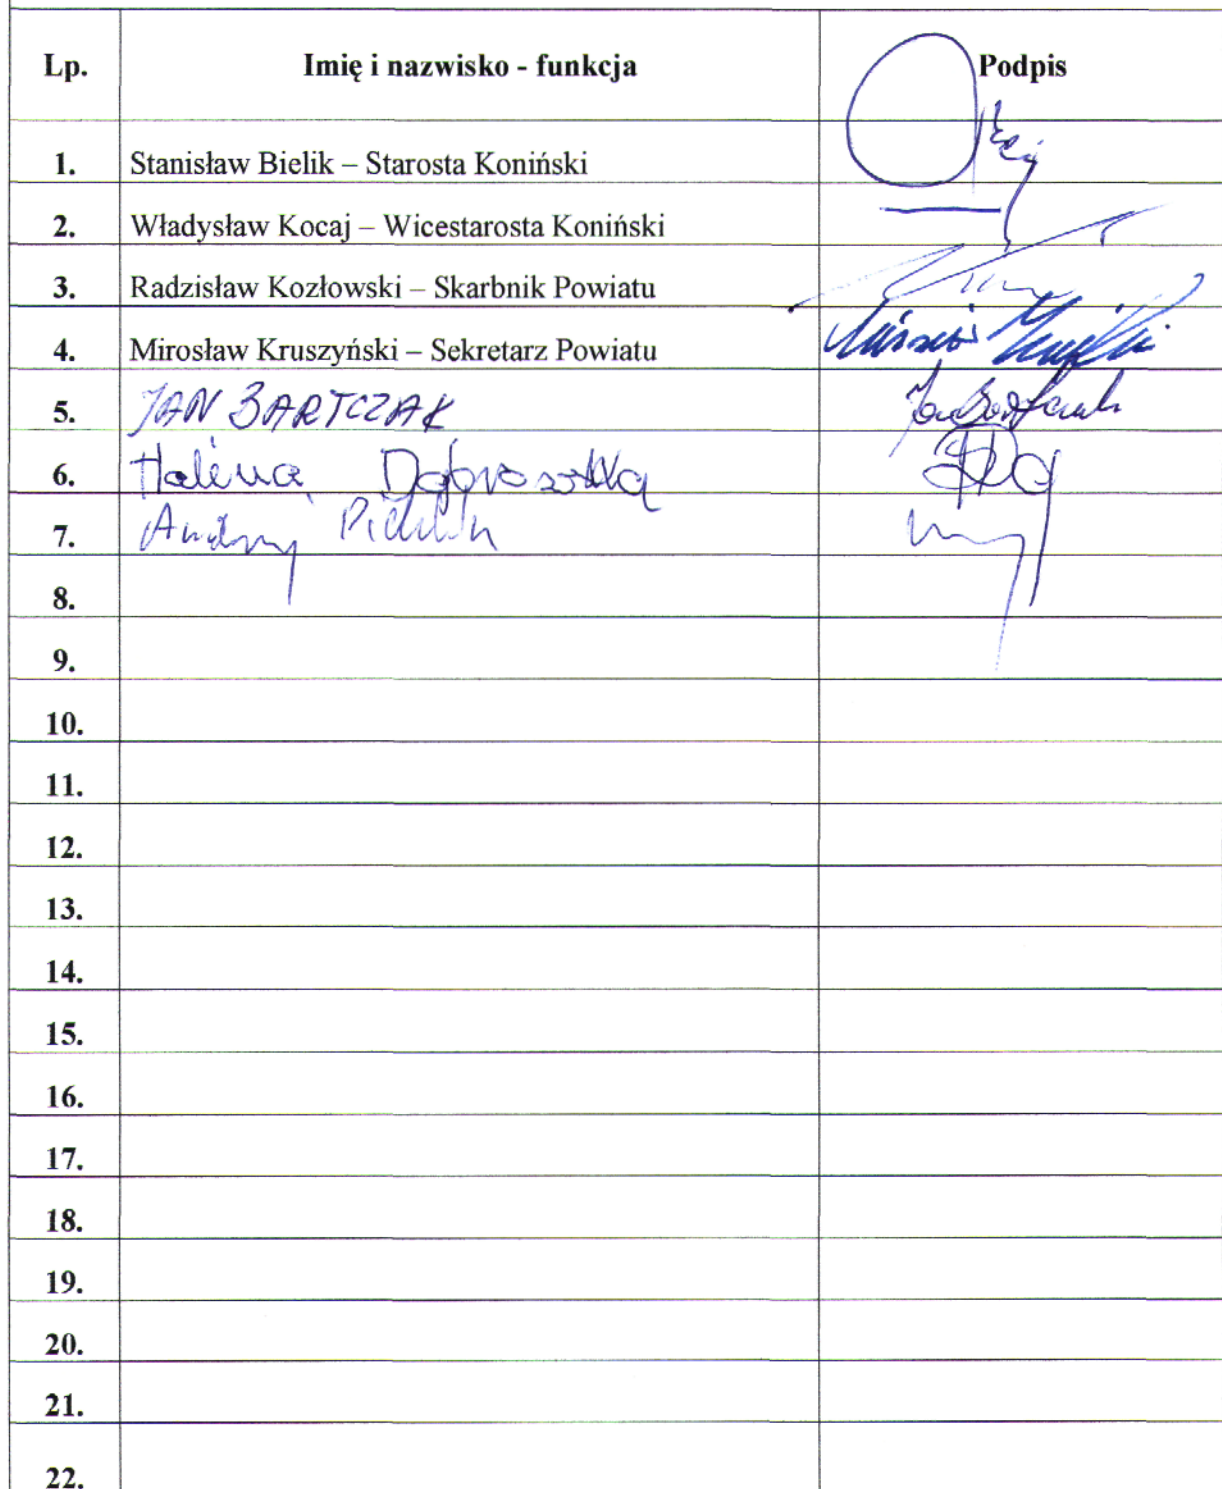 Lp. Imię i nazwisko - funkcja Podpis
1. Stanisław Bielik – Starosta Koniński
2. Władysław Kocaj – Wicestarosta Koniński
3. Radzisław Kozłowski – Skarbnik Powiatu
4. Mirosław Kruszyński – Sekretarz Powiatu
5. JAN BARTCZAK
6. Halena
7. Andrzej
8.
9.
10.
11.
12.
13.
14.
15.
16.
17.
18.
19.
20.
21.
22.